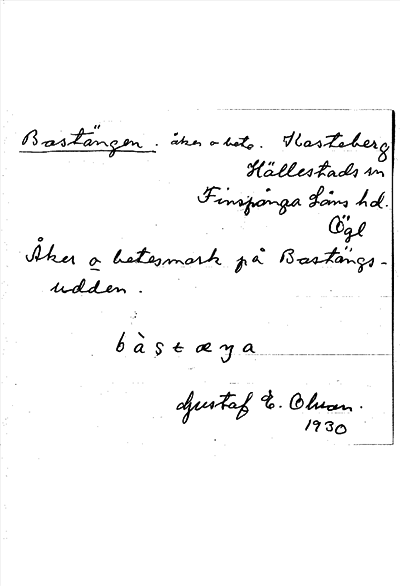 Bastängen. åker o bete. Kasteberg
Hällestads sn
Finspånga läns hd.
Ögl
Åker o betesmark på Bastängs-
udden.
bàstæŋa
Gustaf E. Olson.
1930